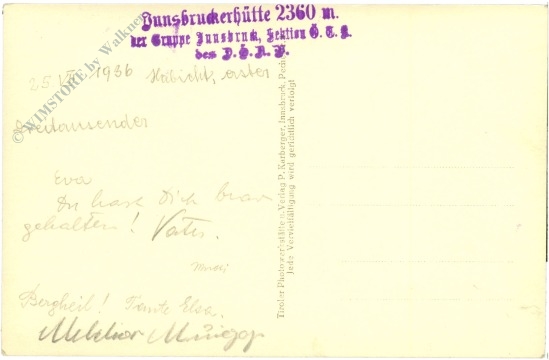 Innsbruckerhütte 2360 m.
der Gruppe Innsbruck, Sektion Ö. T. K.
des D. Ö. A. V.
25 VII. 1936 Habicht, erster
Dreitausender
Eva
Du hast Dich brav
gehalten! Vater.
Bergheil! Tante Elsa.
Melchior
Tiroler Photowerkstätte u. Verlag P. Karberger, Innsbruck,
Jede Vervielfältigung wird gerichtlich verfolgt
© WIMSTORE by Walkner